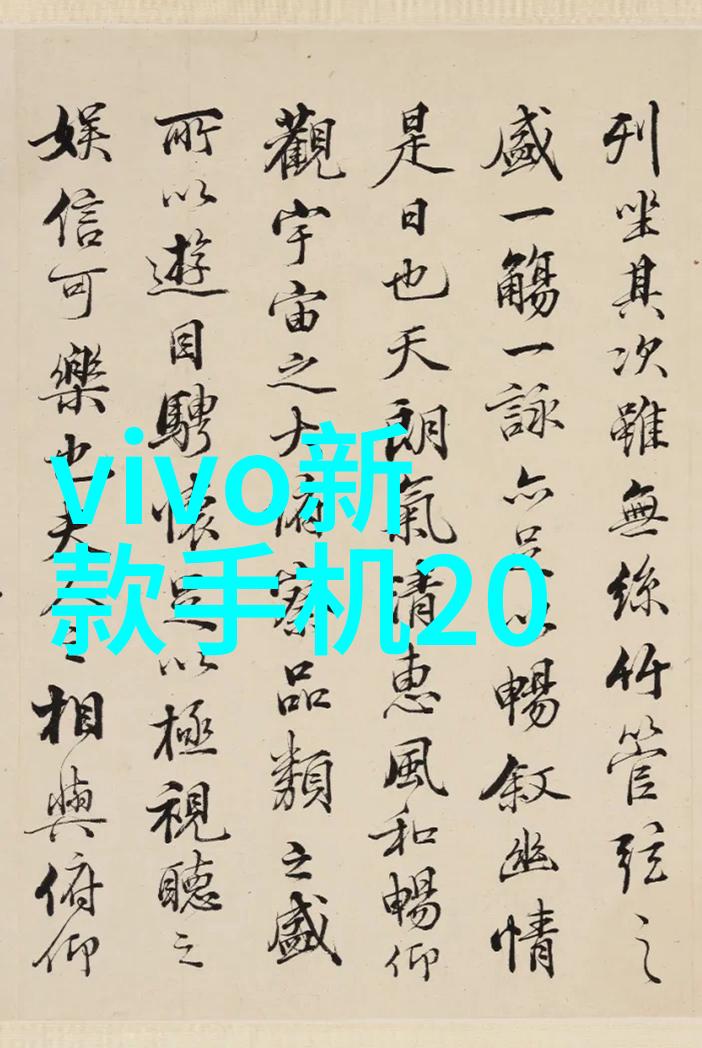 列坐其次雖無絲竹管弦之
盛一觴一詠亦足以暢叙幽情
是日也天朗氣清惠風和暢仰
觀宇宙之大俯察品類之盛
所以遊目騁懷足以極視聽之
娛信可樂也夫人之相與俯仰
vivo新
款手机20